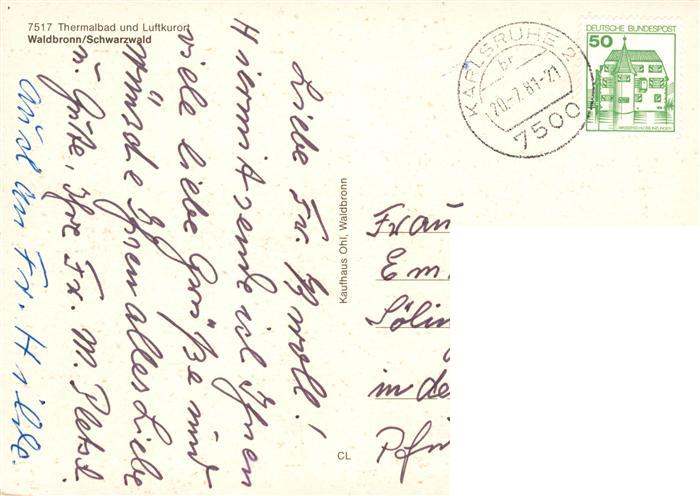 7517 Thermalbad und Luftkurort
Waldbronn/Schwarzwald
Liebe Fr. Groll!
Hiermit sende ich Ihnen
viele liebe Grüße und
wünsche Ihnen alles Liebe
u. Gute, Ihre Fr. M.
auch an Fr. Hilde.
Kaufhaus Ohl, Waldbronn
CL
KARLSRUHE 2
br
20.-7.81-21
7500
DEUTSCHE BUNDESPOST
50
WASSERSCHLOSS INZLINGEN
Frau
Em
Sölin
in de